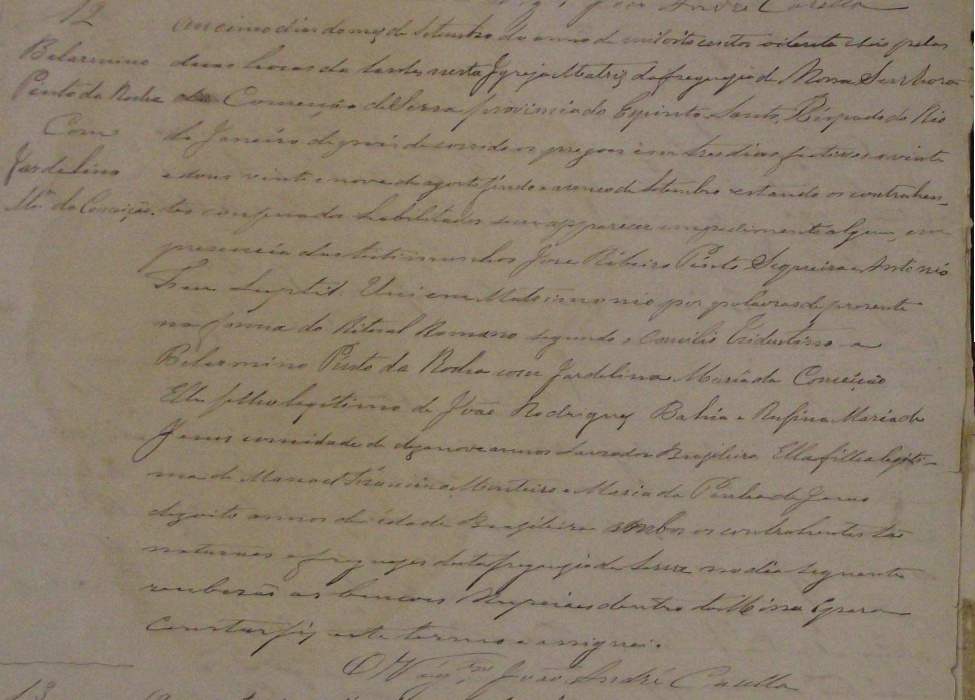 João André Casella
12
Belarmino
Pinto da Rocha
Com
Jardelina
Mª da Conceição.
Aos cinco dias do mez de Setembro do anno de mil oito centos oitenta e seis pelas
duas horas da tarde nesta Igreja Matriz da freguezia de Nossa Senhora
da Conceição da Serra provincia do Espirito Santo, Bispado do Rio
de Janeiro depois de corridos os pregoes em tres dias festivos a vinte
e dous vinte e nove de agosto findo e a cinco de Setembro estando os contrahen-
tes confessados habilitados sem apparecer impedimento algum, em
presencia das testimunhas José Ribeiro Pinto Sequeira e Antonio
Uni em Matrimonio por palavras de presente
na forma do Ritual Romano segundo o Concilio Tridentino a
Belarmino Pinto da Rocha com Jardelina Maria da Conceição
Elle filho legitimo de João Rodrigues Bahia e Rufina Maria de
Jesus com idade de dezanove annos Lavrador Brazileiro Ella filha legiti-
ma de Manoel Francisco Monteiro e Maria da Penha de Jesus
dezoito annos de idade Brazileira ambos os contrahentes são
naturaes e freguezes desta freguezia da Serra no dia seguente
receberão as bençoes Nupciaes dentro da Missa E para
constar fiz este termo e assignei.
O Vigrº João André Casella
13